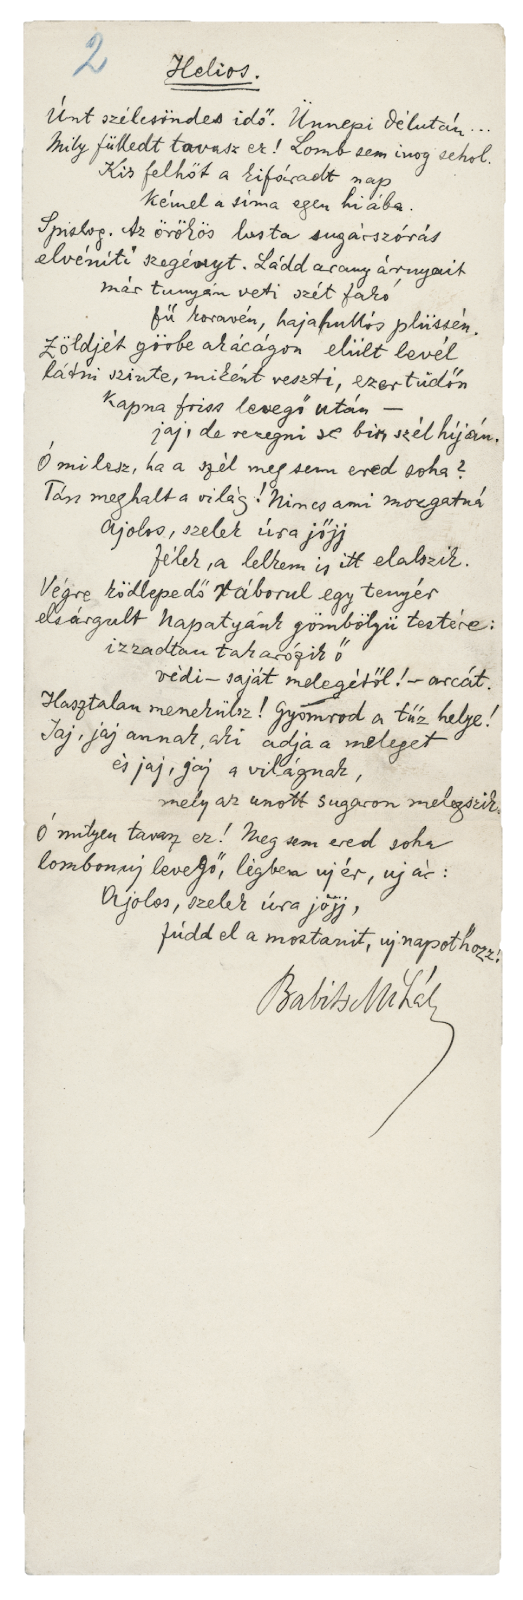 2
Helios.
Únt szélcsöndes idő. Ünnepi délután...
Mily fülledt tavasz ez! Lomb sem inog sehol.
Kis felhőt a kifáradt nap
kémel a síma egen hiába.
Az örökös lusta sugárszórás
elvéníti szegényt. Ládd arany árnyait
már tunyán veti szét fakó
fű koravén, hajahullós plüssén.
Zöldjét görbe akácágon elült levél
látni szinte, miként veszti, ezer tüdőn
kapna friss levegő után —
jaj, de rezegni se bir, szél híján.
Ó mi lesz, ha a szél meg sem ered soha?
Tán meghalt a világ! Nincs ami mozgatná
Ajolos, szelek úra jőjj
félek, a lelkem is itt elalszik.
Végre ködlepedő ráborul egy tenyér
elsárgult Napatyánk gömbölyü testére:
izzadtan takarózik ő
védi — saját melegétől! — arcát.
Hasztalan menekülsz! Gyomrod a tűz helye!
Jaj, jaj annak, aki adja a meleget
és jaj, jaj a világnak,
mely az unott sugaron melegszik.
Ó milyen tavasz ez! Meg sem ered soha
lombon uj levegő, légben uj ér, uj ár:
Ajolos, szelek úra jőjj,
fúdd el a mostanit, uj napot hozz!
Babits Mihály